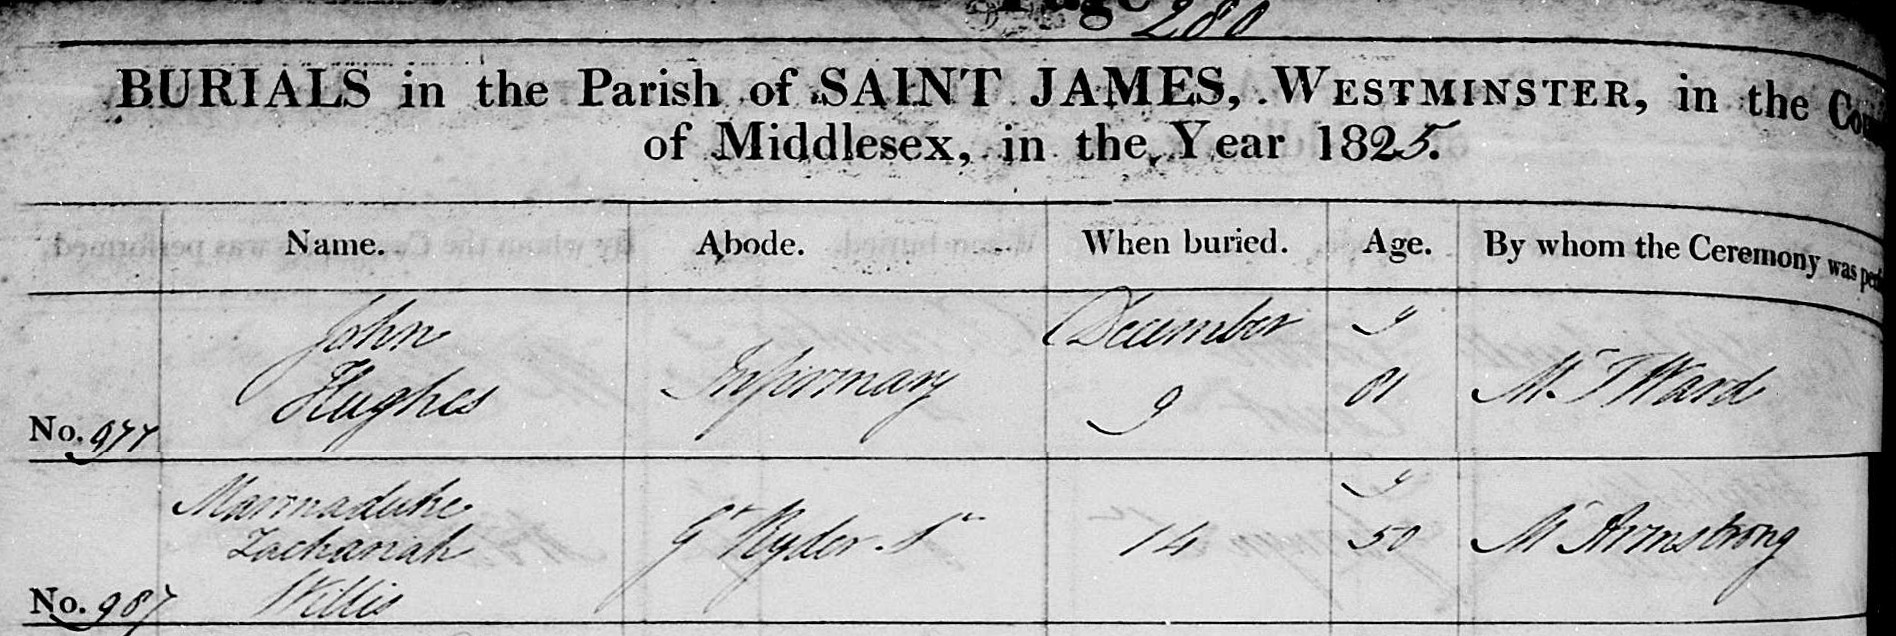 Page 280
BURIALS in the Parish of SAINT JAMES, WESTMINSTER, in the Cou
of Middlesex, in the Year 1825.
Name. Abode. When buried. Age. By whom the Ceremony was perf
John December y
Hughes Infirmary 9 81 Mr. T Ward
No. 977
Marmaduke y
Zachariah Gt Ryder St 14 50 Mr Armstrong
No. 987 Willis